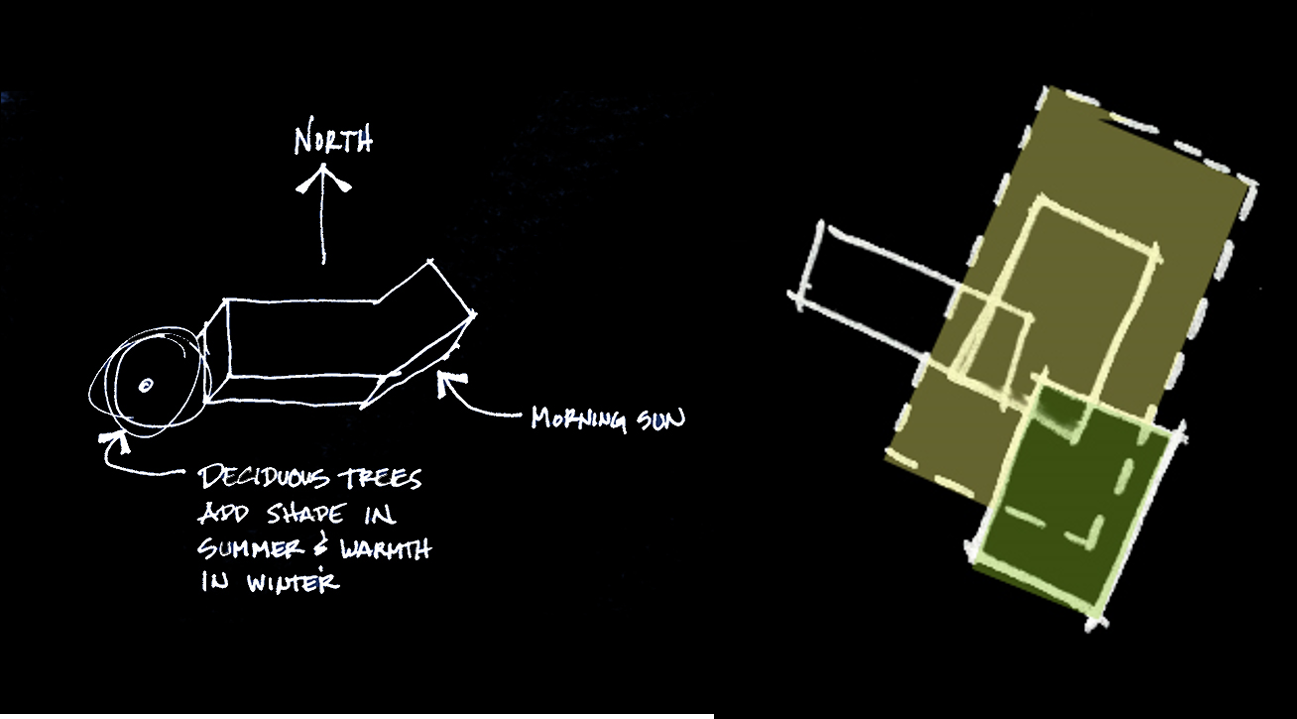 NORTH
MORNING SUN
DECIDUOUS TREES
ADD SHAPE IN
SUMMER & WARMTH
IN WINTER